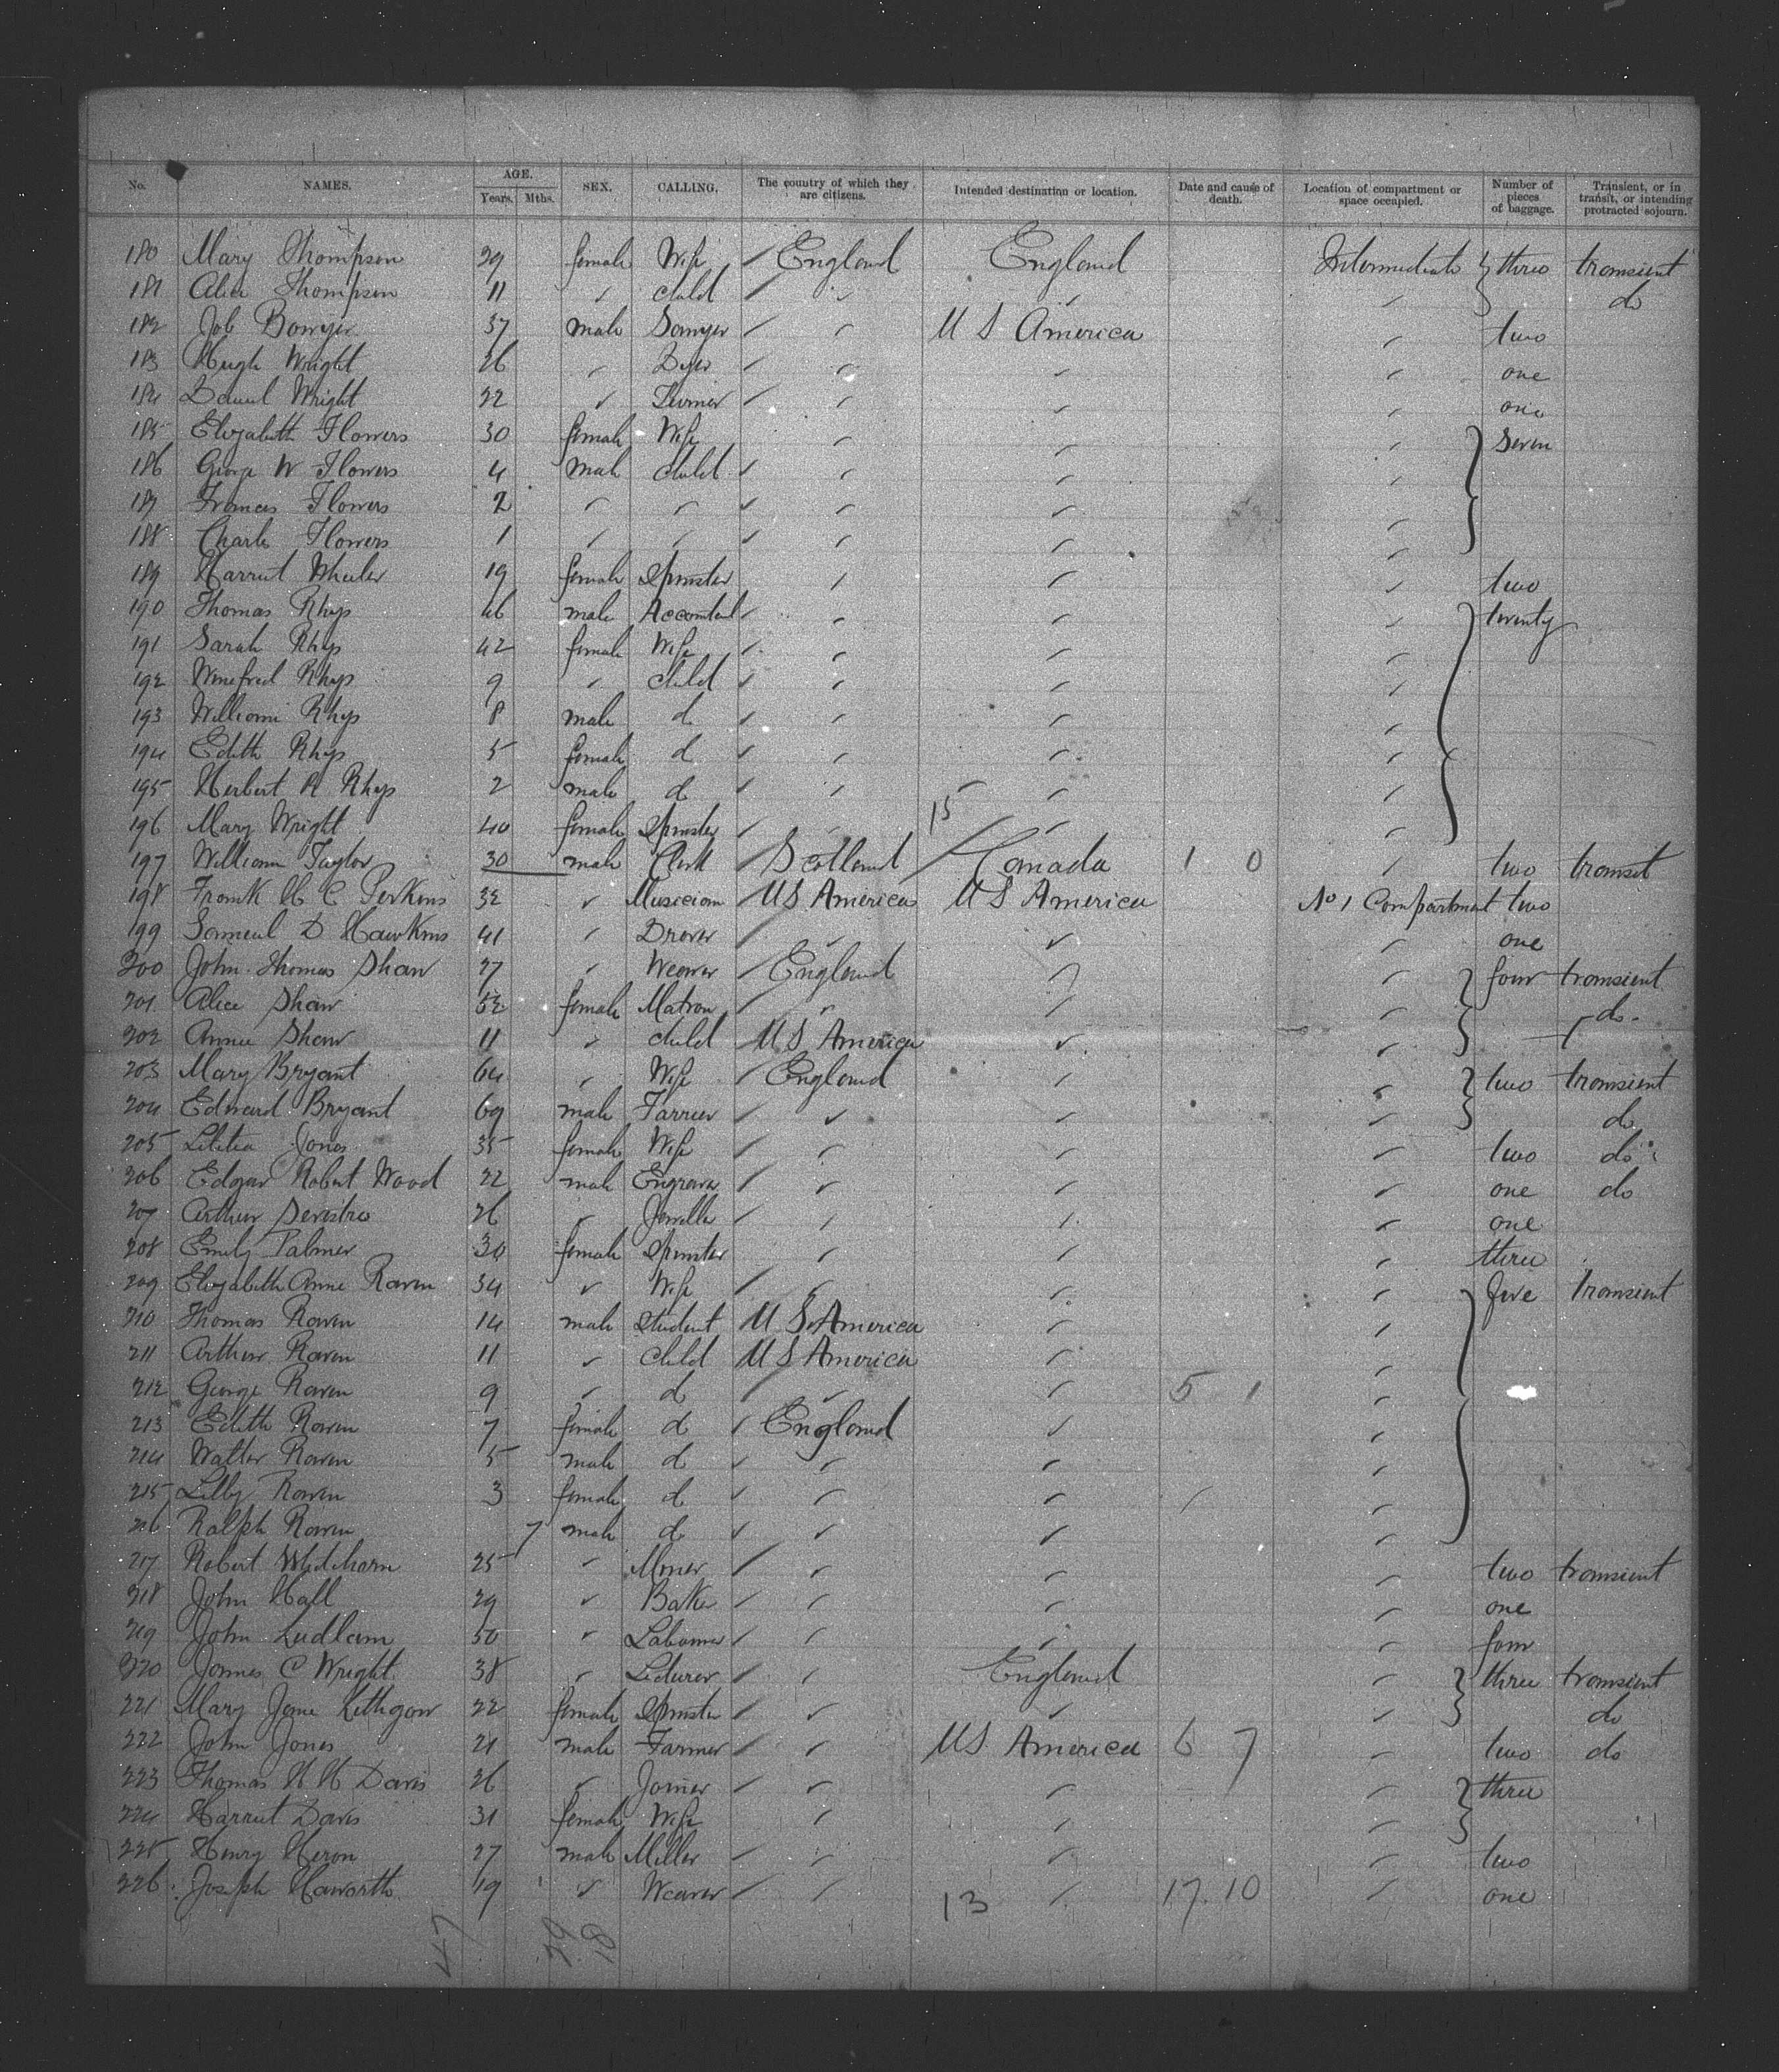 No. NAMES. AGE. Years. Mths. SEX. CALLING. The country of which they are citizens. Intended destination or location. Date and cause of death. Location of compartment or space occupied. Number of pieces of baggage. Transient, or in transit, or intending protracted sojourn.
180 Mary Thompson 39 female Wife England England Intermediate three transient
181 Alice Thompson 11 " child " " " do
182 Job Bowyer 37 male Sawyer " U S America " two
183 Hugh Wright 26 " Dyer " " " one
184 Daniel Wright 22 " Turner " " " one
185 Elizabeth Flowers 30 female Wife " " " seven
186 George W Flowers 4 male child " " "
187 Frances Flowers 2 " " " " "
188 Charles Flowers 1 " " " " "
189 Harriet Wheeler 19 female Spinster " " " two
190 Thomas Rhys 46 male Accountant " " " twenty
191 Sarah Rhys 42 female Wife " " "
192 Winefred Rhys 9 " child " " "
193 William Rhys 8 male d " " "
194 Edith Rhys 5 female d " " "
195 Herbert R Rhys 2 male d " " "
196 Mary Wright 40 female Spinster " 15 " "
197 William Taylor 30 male Clerk Scotland Canada 1 0 " two transit
198 Frank H C Perkins 32 " Musician U S America U S America No 1 Compartment two
199 Samuel D Hawkins 41 " Drover " " " one
200 John Thomas Shaw 27 " Weaver England " " four transient
201 Alice Shaw 52 female Matron " " " do
202 Annie Shaw 11 " child U S America " "
203 Mary Bryant 64 " Wife England " " two transient
204 Edward Bryant 69 male Farrier " " " do
205 Letitia Jones 35 female Wife " " " two do
206 Edgar Robert Wood 22 male Engraver " " " one do
207 Arthur 26 " Jeweller " " " one
208 Emily Palmer 30 female Spinster " " " three
209 Elizabeth Anne Raven 34 " Wife " " " five transient
210 Thomas Raven 14 male Student U S America " "
211 Arthur Raven 11 " child U S America " "
212 George Raven 9 " d " " 5 1 "
213 Edith Raven 7 female d England " "
214 Walter Raven 5 male d " " "
215 Lilly Raven 3 female d " " "
216 Ralph Raven 7 male d " " "
217 Robert Whitehorn 25 " Miner " " " two transient
218 John Hall 29 " Baker " " " one
219 John Ludlam 50 " Labourer " " " four
220 James C Wright 38 " Lecturer " England " three transient
221 Mary Jane Lethgow 22 female Spinster " " " do
222 John Jones 21 male Farmer " U S America 6 7 " two do
223 Thomas H H Davis 26 " Joiner " " " three
224 Harriet Davis 31 female Wife " " "
225 Henry Heron 27 male Miller " " " two
226 Joseph Haworth 49 " Weaver " 13 " 17 10 " one
47 29 18